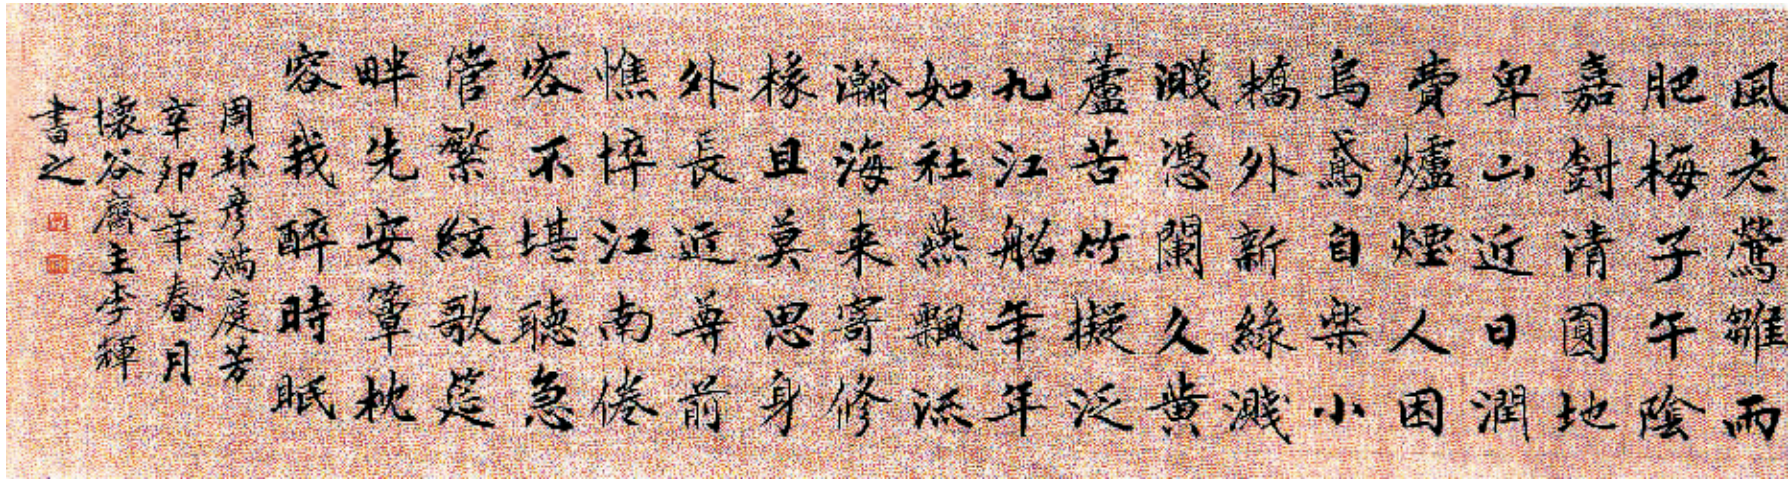 風老鶯雛雨
肥梅子午陰
嘉尌清圓地
卑山近日潤
費爐煙人困
烏鳶自楽小
橋外新綠濺
濺憑闌久黄
蘆苦竹擬泛
九江船年年
如社燕飄流
瀚海来寄修
椽且莫思身
外長近尊前
憔悴江南倦
容不堪聽急
管繁絃歌筵
畔先安簟枕
容我醉時眠
周邦彥滿庭芳
辛卯年春月
懷谷齋主李輝
書之